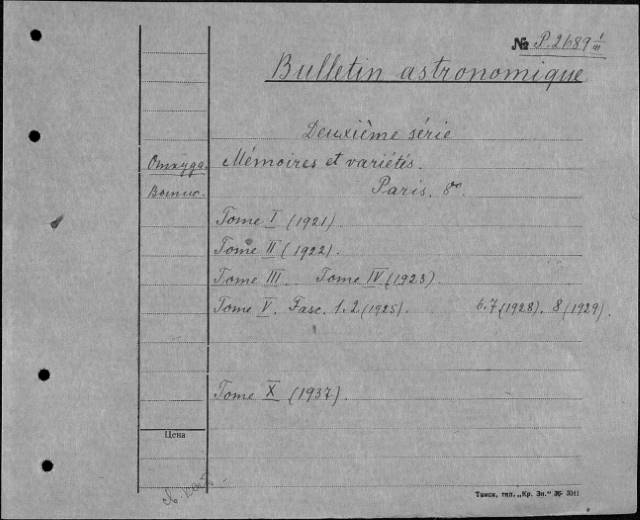 № P.2689 I/III
Bulletin astronomique
Deuxième série
Откуда. Mémoires et variétés.
Paris. 8°.
Tome I (1921)
Tome II (1922).
Tome III. Tome IV (1923).
Tome V. Fasc. 1.2 (1925). 6.7 (1928). 8 (1929).
Tome X (1937).
Цена
Томск, тип. „Кр. Зн."